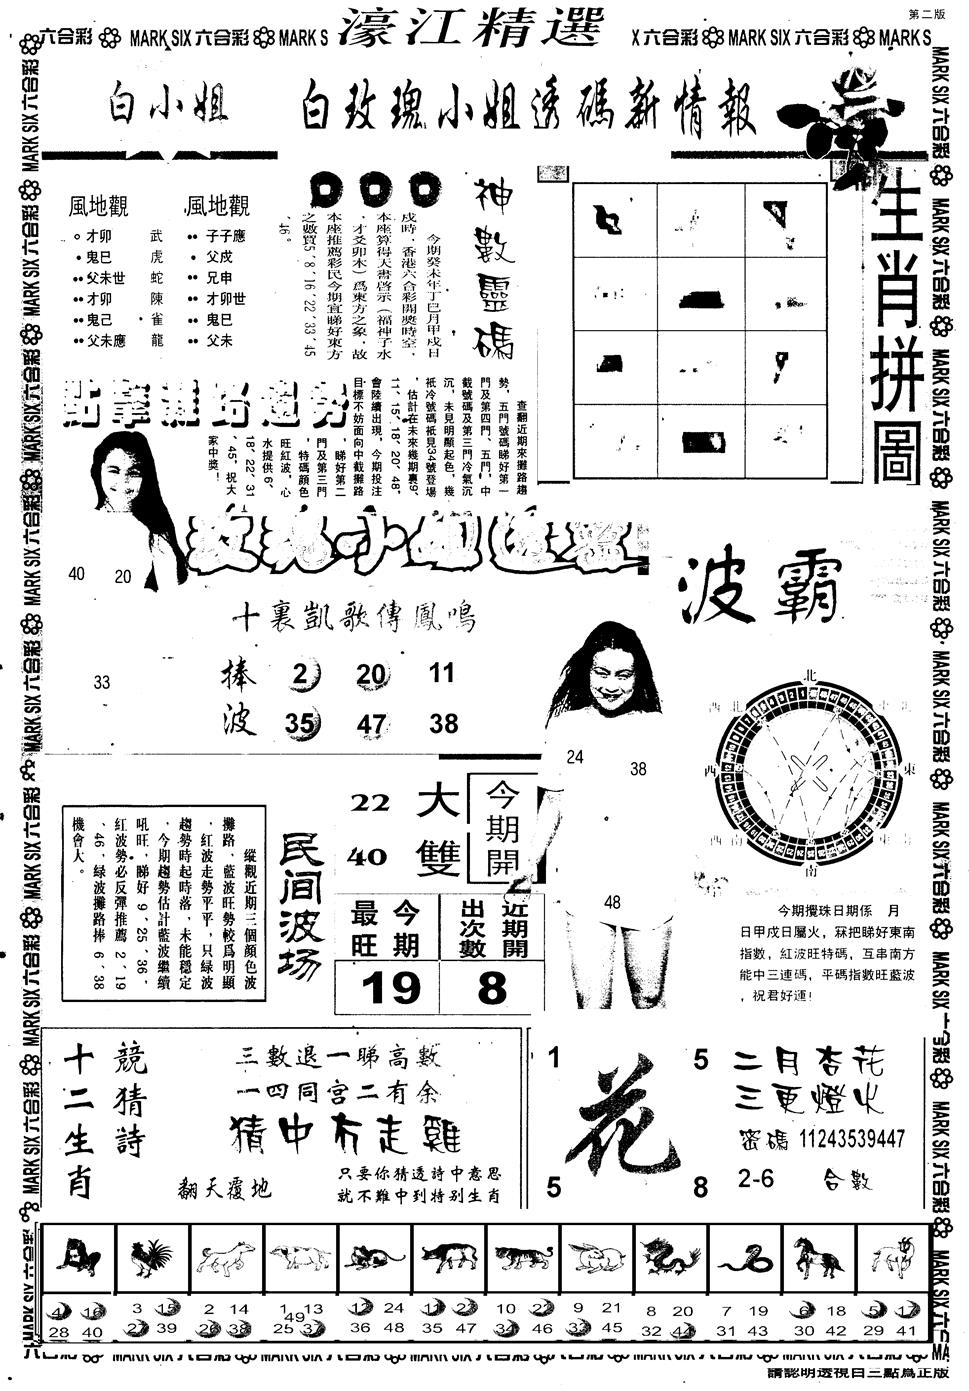 第二版
六合彩 MARK SIX 六合彩 MARK S
濠江精選
X 六合彩 MARK SIX 六合彩 MARK S
白小姐
白玫瑰小姐透碼新情報
風地觀
才卯 武
鬼巳 虎
父未世 蛇
才卯 陳
鬼己 雀
父未應 龍
風地觀
子子應
父戍
兄申
才卯世
鬼巳
父未
神數靈碼
今期癸未年丁巳月甲戍日
戍時，香港六合彩開獎時空，
本座算得天書啓示（福神子水
，才爻卯木）爲東方之象，故
本座推薦彩民今期宜睇好東方
之數買5、8、16、22、33、45
、46。
生肖拼圖
查翻近期來攤路趨
勢，五門號碼睇好第一
門及第四門、五門，中
截號碼及第三門冷氣沉
沉，未見明顯起色，幾
衹冷號碼衹見34號登場
，估計在未來幾期裏9、
11、15、18、20、48、
會陸續出現，今期投注
目標不妨面向中截攤路
，睇好第二
門及第三門
，特碼顔色
旺紅波，心
水提供6、
18、22、31
、45，祝大
家中獎！
40 20
33
十裏凱歌傳鳳鳴
捧波
2 20 11
35 47 38
波霸
24 38
48
北
東
南
西
西北
東北
西南
東南
縱觀近期三個顔色波
攤路，藍波旺勢較爲明顯
，紅波走勢平平，只綠波
趨勢時起時落，未能穩定
，今期趨勢估計藍波繼續
吼旺，睇好9、25、36，
紅波勢必反彈推薦2、19
、46，緑波攤路捧6、38
機會大。
民间波场
22 大
40 雙
今期開
今期最旺
19
近期開出次數
8
今期攪珠日期係 月
日甲戍日屬火，冧把睇好東南
指數，紅波旺特碼，互串南方
能中三連碼，平碼指數旺藍波
，祝君好運！
十二生肖
競猜詩
三數退一睇高數
一四同宮二有余
猜中冇走雞
翻天覆地
只要你猜透詩中意思
就不難中到特别生肖
1 5
花
5 8
二月杏花
三更燈火
密碼 11243539447
2-6 合數
4 16 28 40
3 15 27 39
2 14 26 38
1 13 25 37 49
12 24 36 48
11 23 35 47
10 22 34 46
9 21 33 45
8 20 32 44
7 19 31 43
6 18 30 42
5 17 29 41
請認明透視百三點爲正版